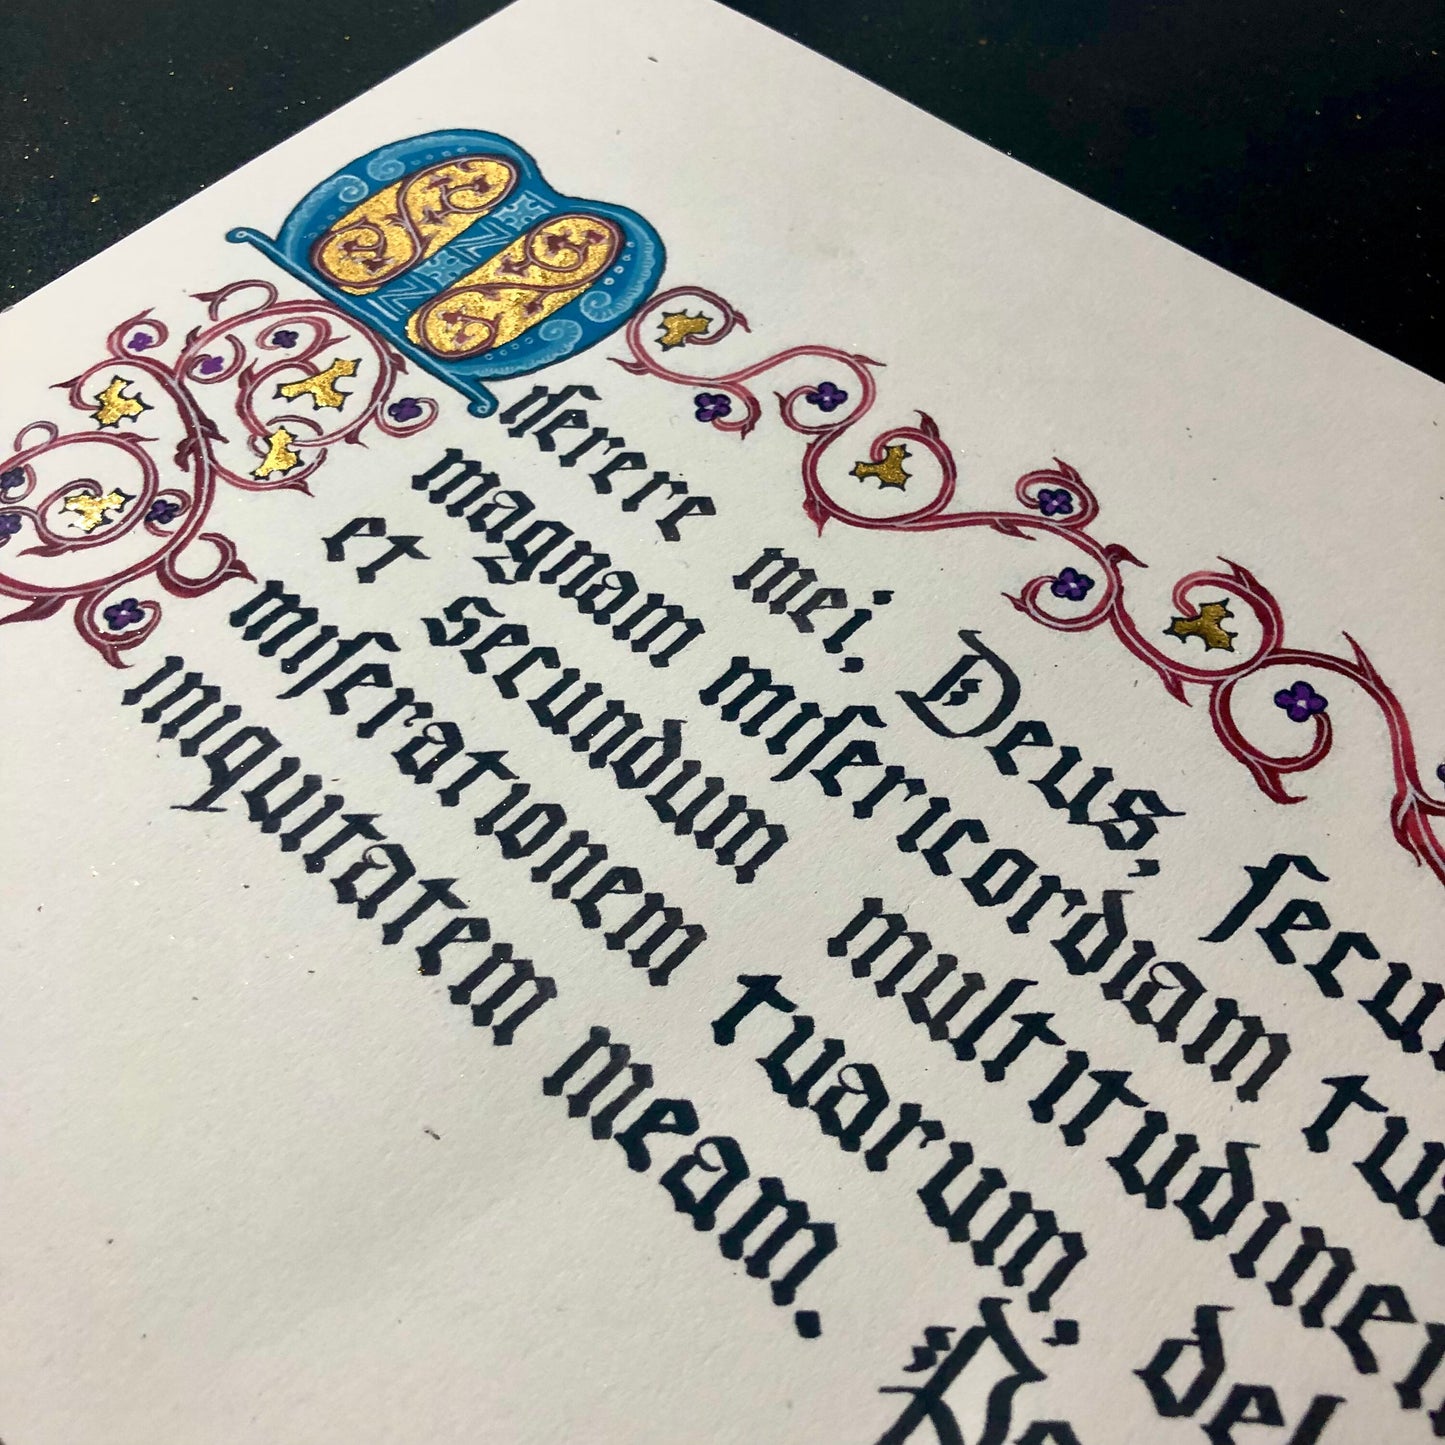 Miſerere mei, Deus, ſecu
magnam miſericordiam tua
et secundum multitudine
miſerationem tuarum, del
iniquitatem meam.